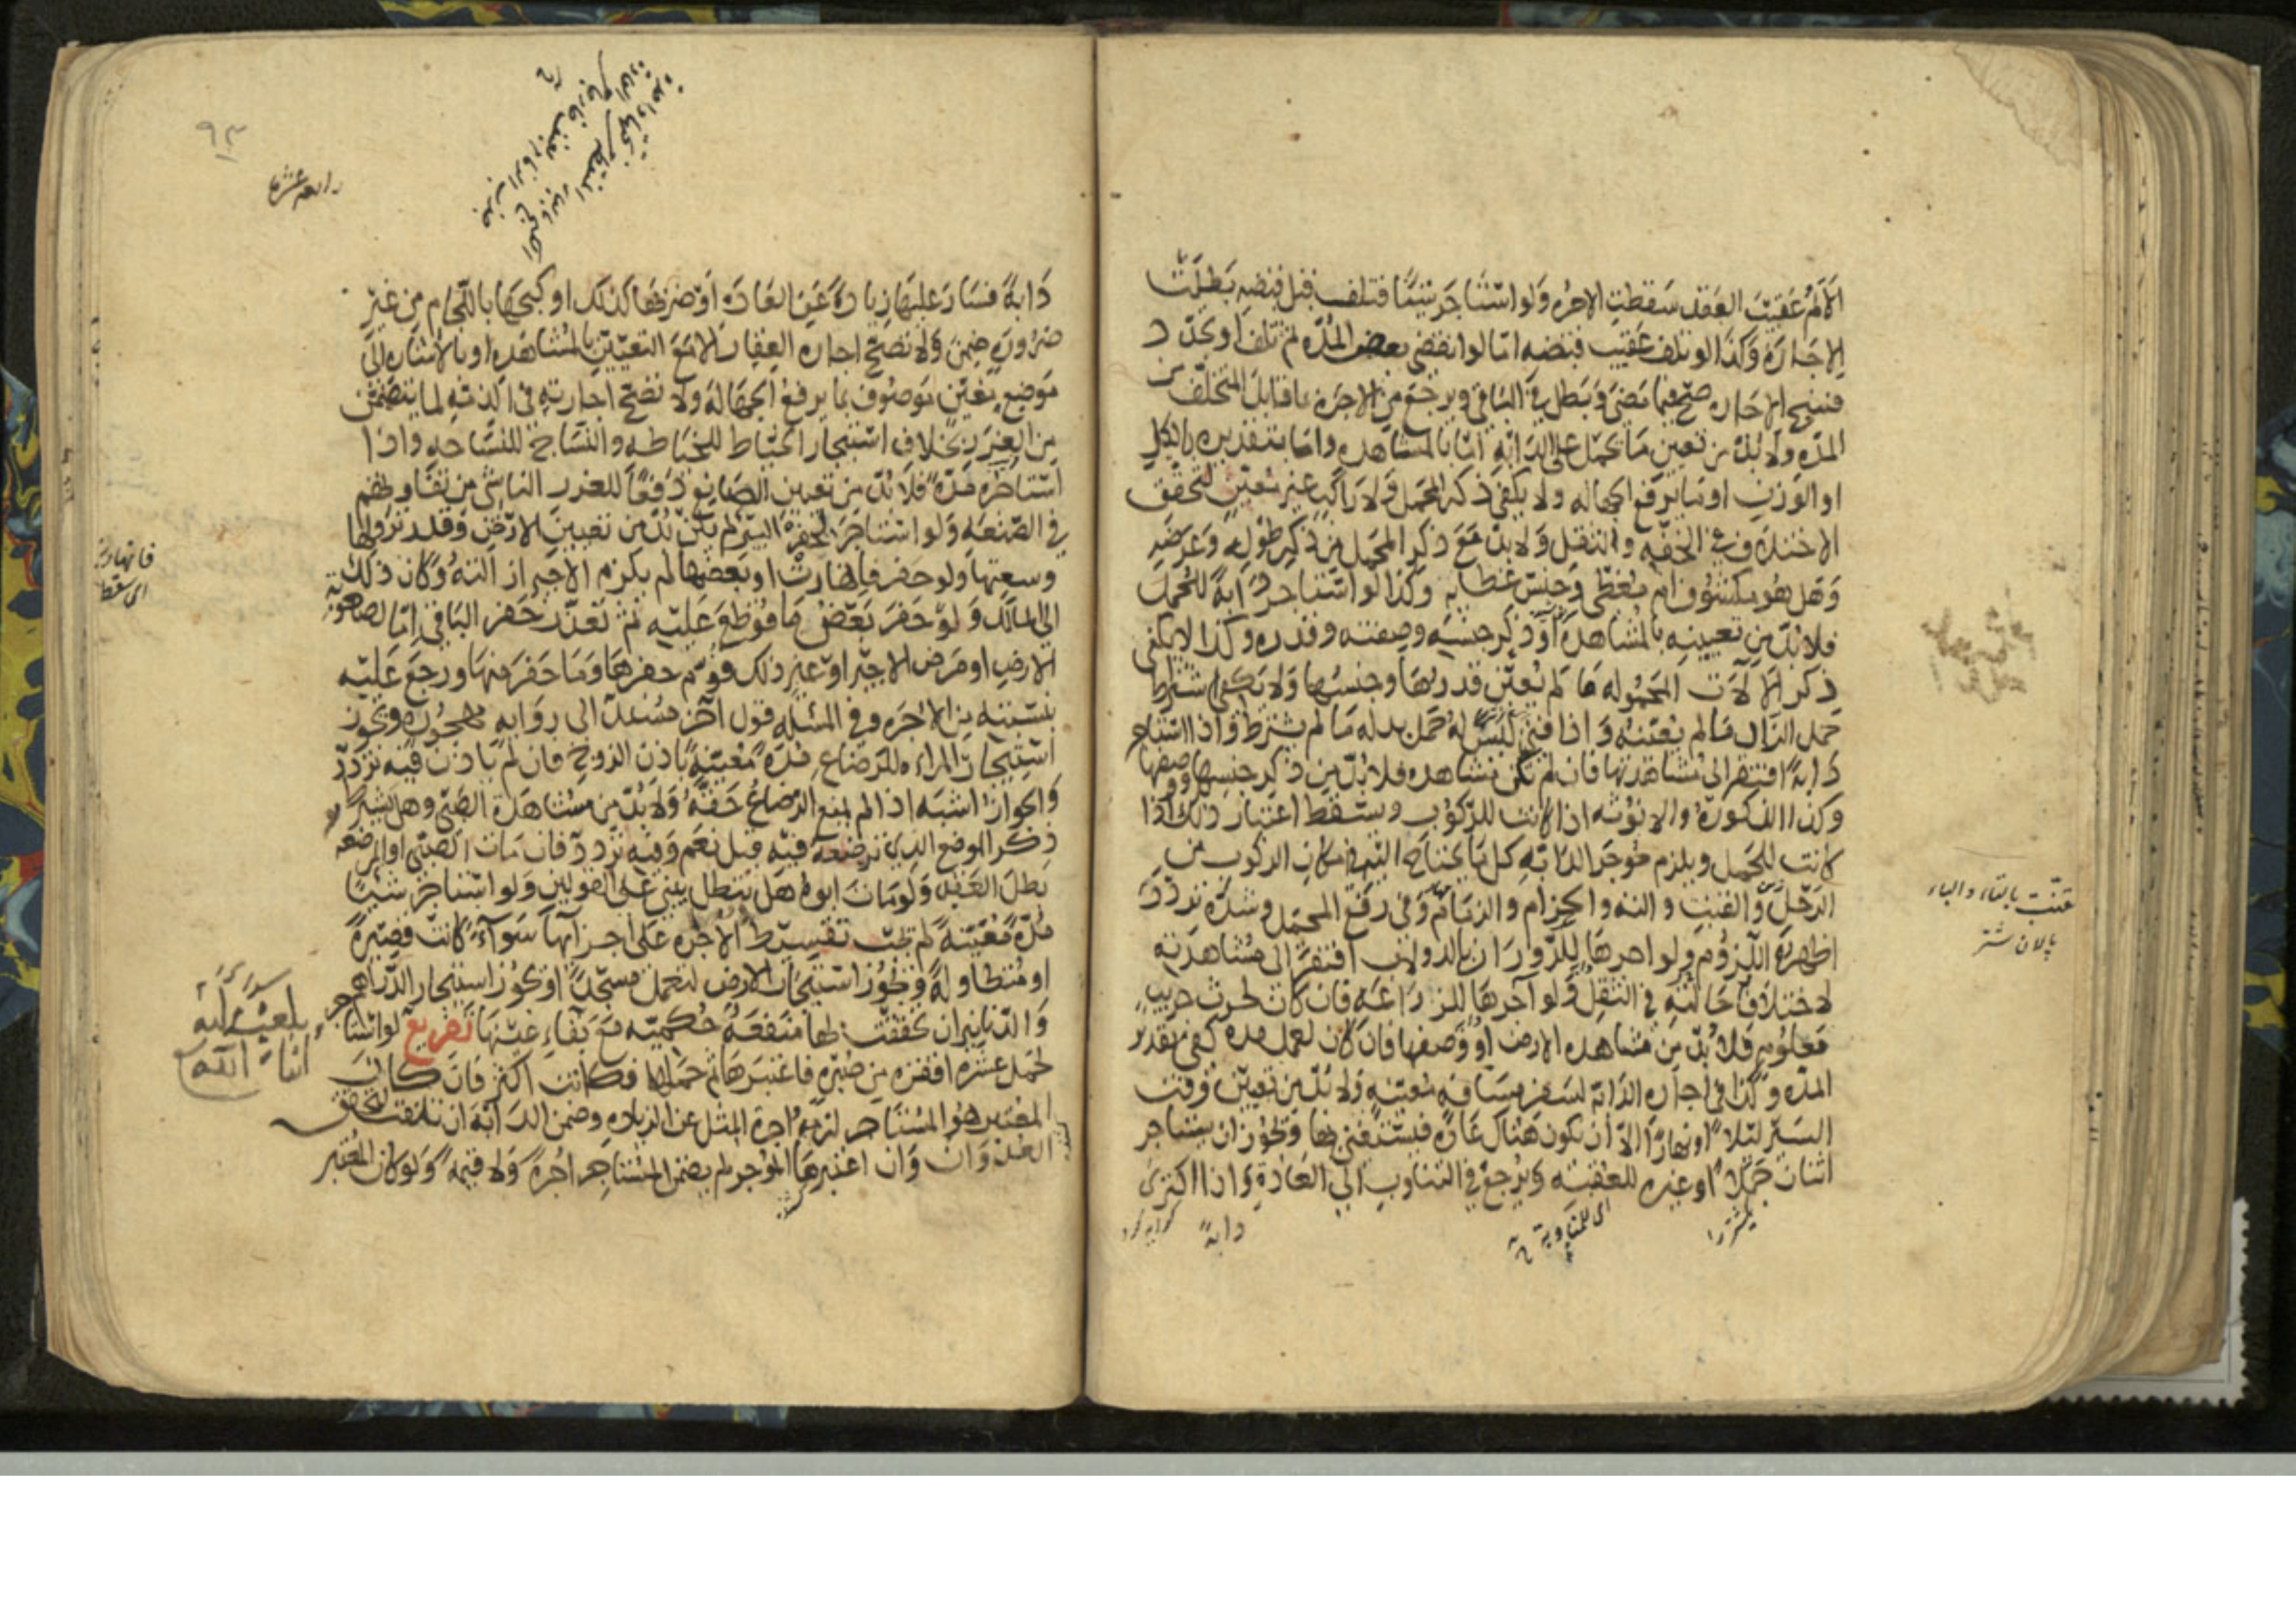 الالم عقيب العقد سقطت الاجرة ولو استأجر شيئا فتلف قبل قبضه بطلت
الاجارة وكذا لو تلف عقيب قبضه اما لو انقضى بعض المدة ثم تلف او تجدد
فسخ الاجارة صح فيما مضى وبطل في الباقي ويرجع من الاجرة بما قابل المتخلف من
المدة ولا بد من تعيين ما يحمل على الدابة اما بالمشاهدة واما بتقديره بالكيل
او الوزن او ما يرفع الجهالة ولا يكفي ذكر المحمل ولا راكب غير معين لتحقق
الاختلاف في الخفة والثقل ولا بد مع ذكر المحمل من ذكر طوله وعرضه
وهل هو مكشوف ام مغطى وجنس غطائه وكذا لو استأجر دابة للحمل
فلا بد من تعيينه بالمشاهدة او ذكر جنسه وصفته وقدره وكذا لا يكفي
ذكر الالات المحمولة ما لم يعين قدرها وجنسها ولا يكفي اشتراط
حمل الزاد ما لم يعينه واذا فني ليس له حمل بدله ما لم يشترط واذا استأجر
دابة افتقر الى مشاهدتها فان لم تكن مشاهدة فلا بد من ذكر جنسها ووصفها
وكذا الذكورة والانوثة اذا كانت للركوب وسقط اعتبار ذلك اذا
كانت للحمل ويلزم موجر الدابة كل ما يحتاج اليه في امكان الركوب من
الرحل والقتب والته والحزام والزمام وفي رفع المحمل وشده تردد
اظهره اللزوم ولو اجرها للدوران بالدولاب افتقر الى مشاهدته
لاختلاف حالته في الثقل ولو آجرها للزراعة فان كان لحرث جريب
معلوم فلا بد من مشاهدة الارض او وصفها فان كان لعمل مدة كفى تقدير
المدة وكذا في اجارة الدابة لسفر مسافة معينة ولا بد من تعيين وقت
السير ليلا او نهارا الا ان يكون هناك عادة فيستغنى بها ويجوز ان يستأجر
اثنان جملا او غيره للعقبة ويرجع في التناوب الى العادة واذا اكترى
دابة
اى للمناوبة
قتب بالتاء والباء
پالان شتر
٩٣
رابعه عشر
دابة فسار عليها زيادة عن العادة او ضربها كذلك او كبحها باللجام من غير
ضرورة ضمن ولا تصح اجارة العقار الا مع التعيين بالمشاهدة او بالاشارة الى
موضع معين موصوف بما يرفع الجهالة ولا تصح اجارته في الذمة لما يتضمن
من الغرر بخلاف استيجار الخياط للخياطة والنساج للنساجة واذا
استأجره مدة فلا بد من تعيين الصانع دفعا للغرر الناشي من تفاوتهم
في الصنعة ولو استأجر لحفر البير لم يكن بد من تعيين الارض وقدر نزولها
وسعتها ولو حفر فانهارت او بعضها لم يلزم الاجير ازالته وكان ذلك
الى المالك ولو حفر بعض ما قوطع عليه ثم تعذر حفر الباقي اما لصعوبة
الارض او مرض الاجير او غير ذلك قوم حفرها وما حفر منها ورجع عليه
بنسبته من الاجرة وفي المسئلة قول آخر مستند الى رواية مهجورة ويجوز
استيجار المراة للرضاع مدة معينة باذن الزوج فان لم ياذن فيه تردد
والجواز اشبه اذا لم يمنع الرضاع حقه ولا بد من مشاهدة الصبي وهل يشترط
ذكر الموضع الذي ترضعه فيه قيل نعم وفيه تردد فان مات الصبي او المرضعة
بطل العقد ولو مات ابوه هل يبطل يبنى على القولين ولو استأجر شيئا
مدة معينة لم يجب تقسيط الاجرة على اجزائها سواء كانت قصيرة
او متطاولة ويجوز استيجار الارض لتعمل مسجدا ويجوز استيجار الدراهم
والدنانير ان تحققت لها منفعة حكمية مع بقاء عينها تفريع لو استأجر
لحمل عشرة اقفزة من صبرة فاعتبرها ثم حملها فكانت اكثر فان كان
المعتبر هو المستاجر لزمه اجرة المثل عن الزيادة وضمن الدابة ان تلفت لتحقق
العدوان وان اعتبرها الموجر لم يضمن المستاجر اجرة ولا قيمة ولو كان المعتبر
اى سقط
بلغ